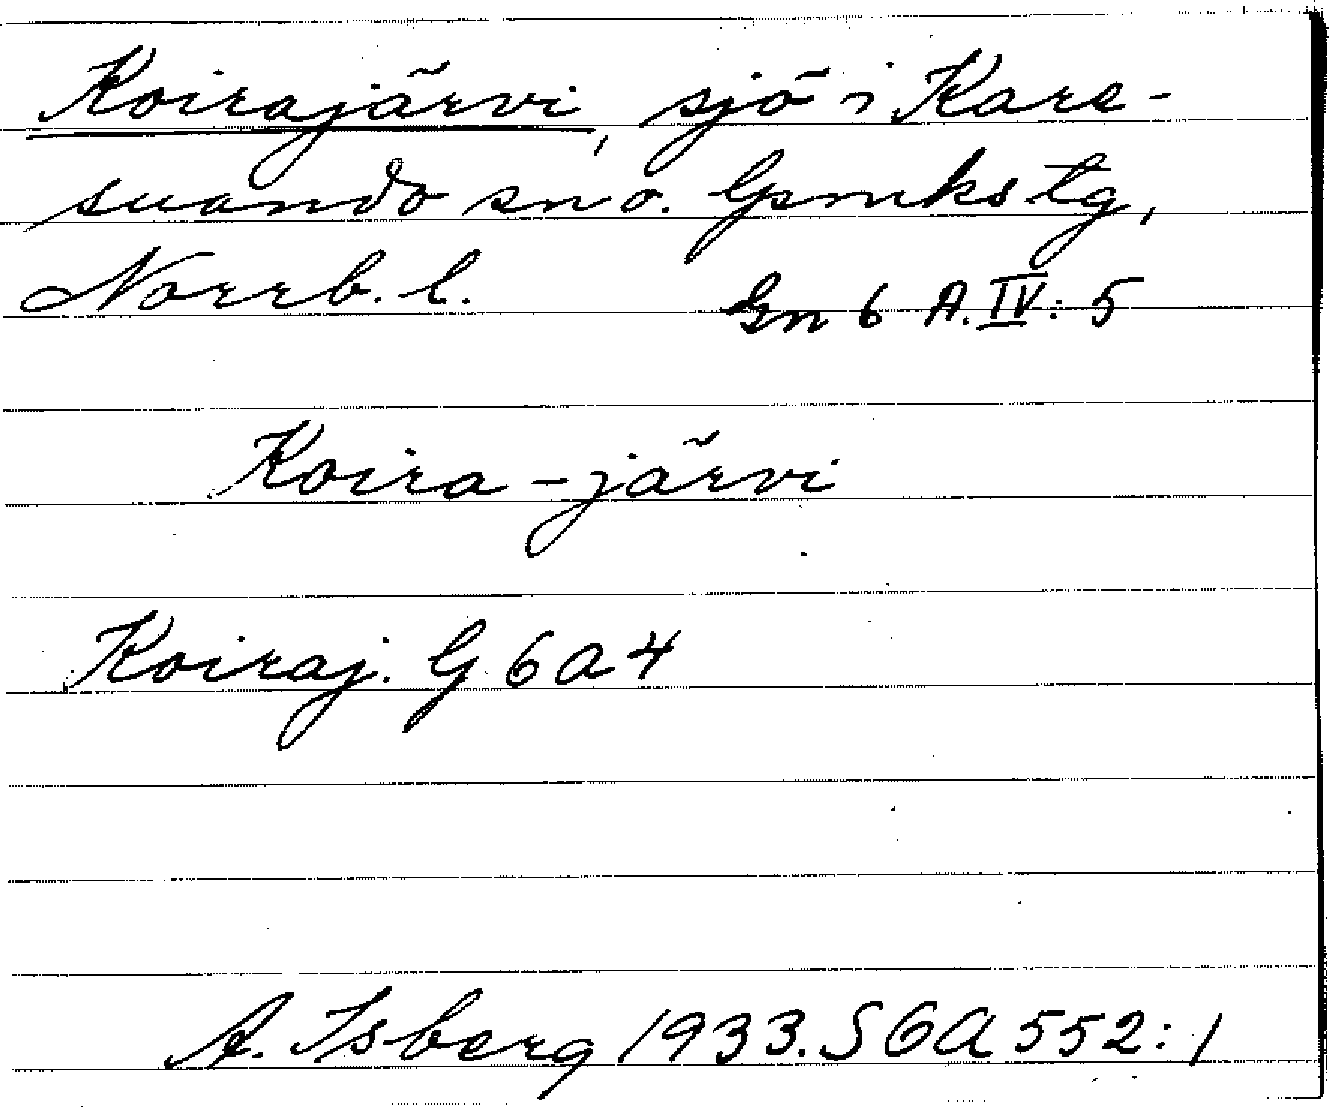 Koirajärvi, sjö i Kare-
suando sn o. lpmkstg,
Norrb. l. Gn 6 A. IV: 5
Koira-järvi
Koiraj. G 6 a 4
A. Isberg 1933. SOA 552:1